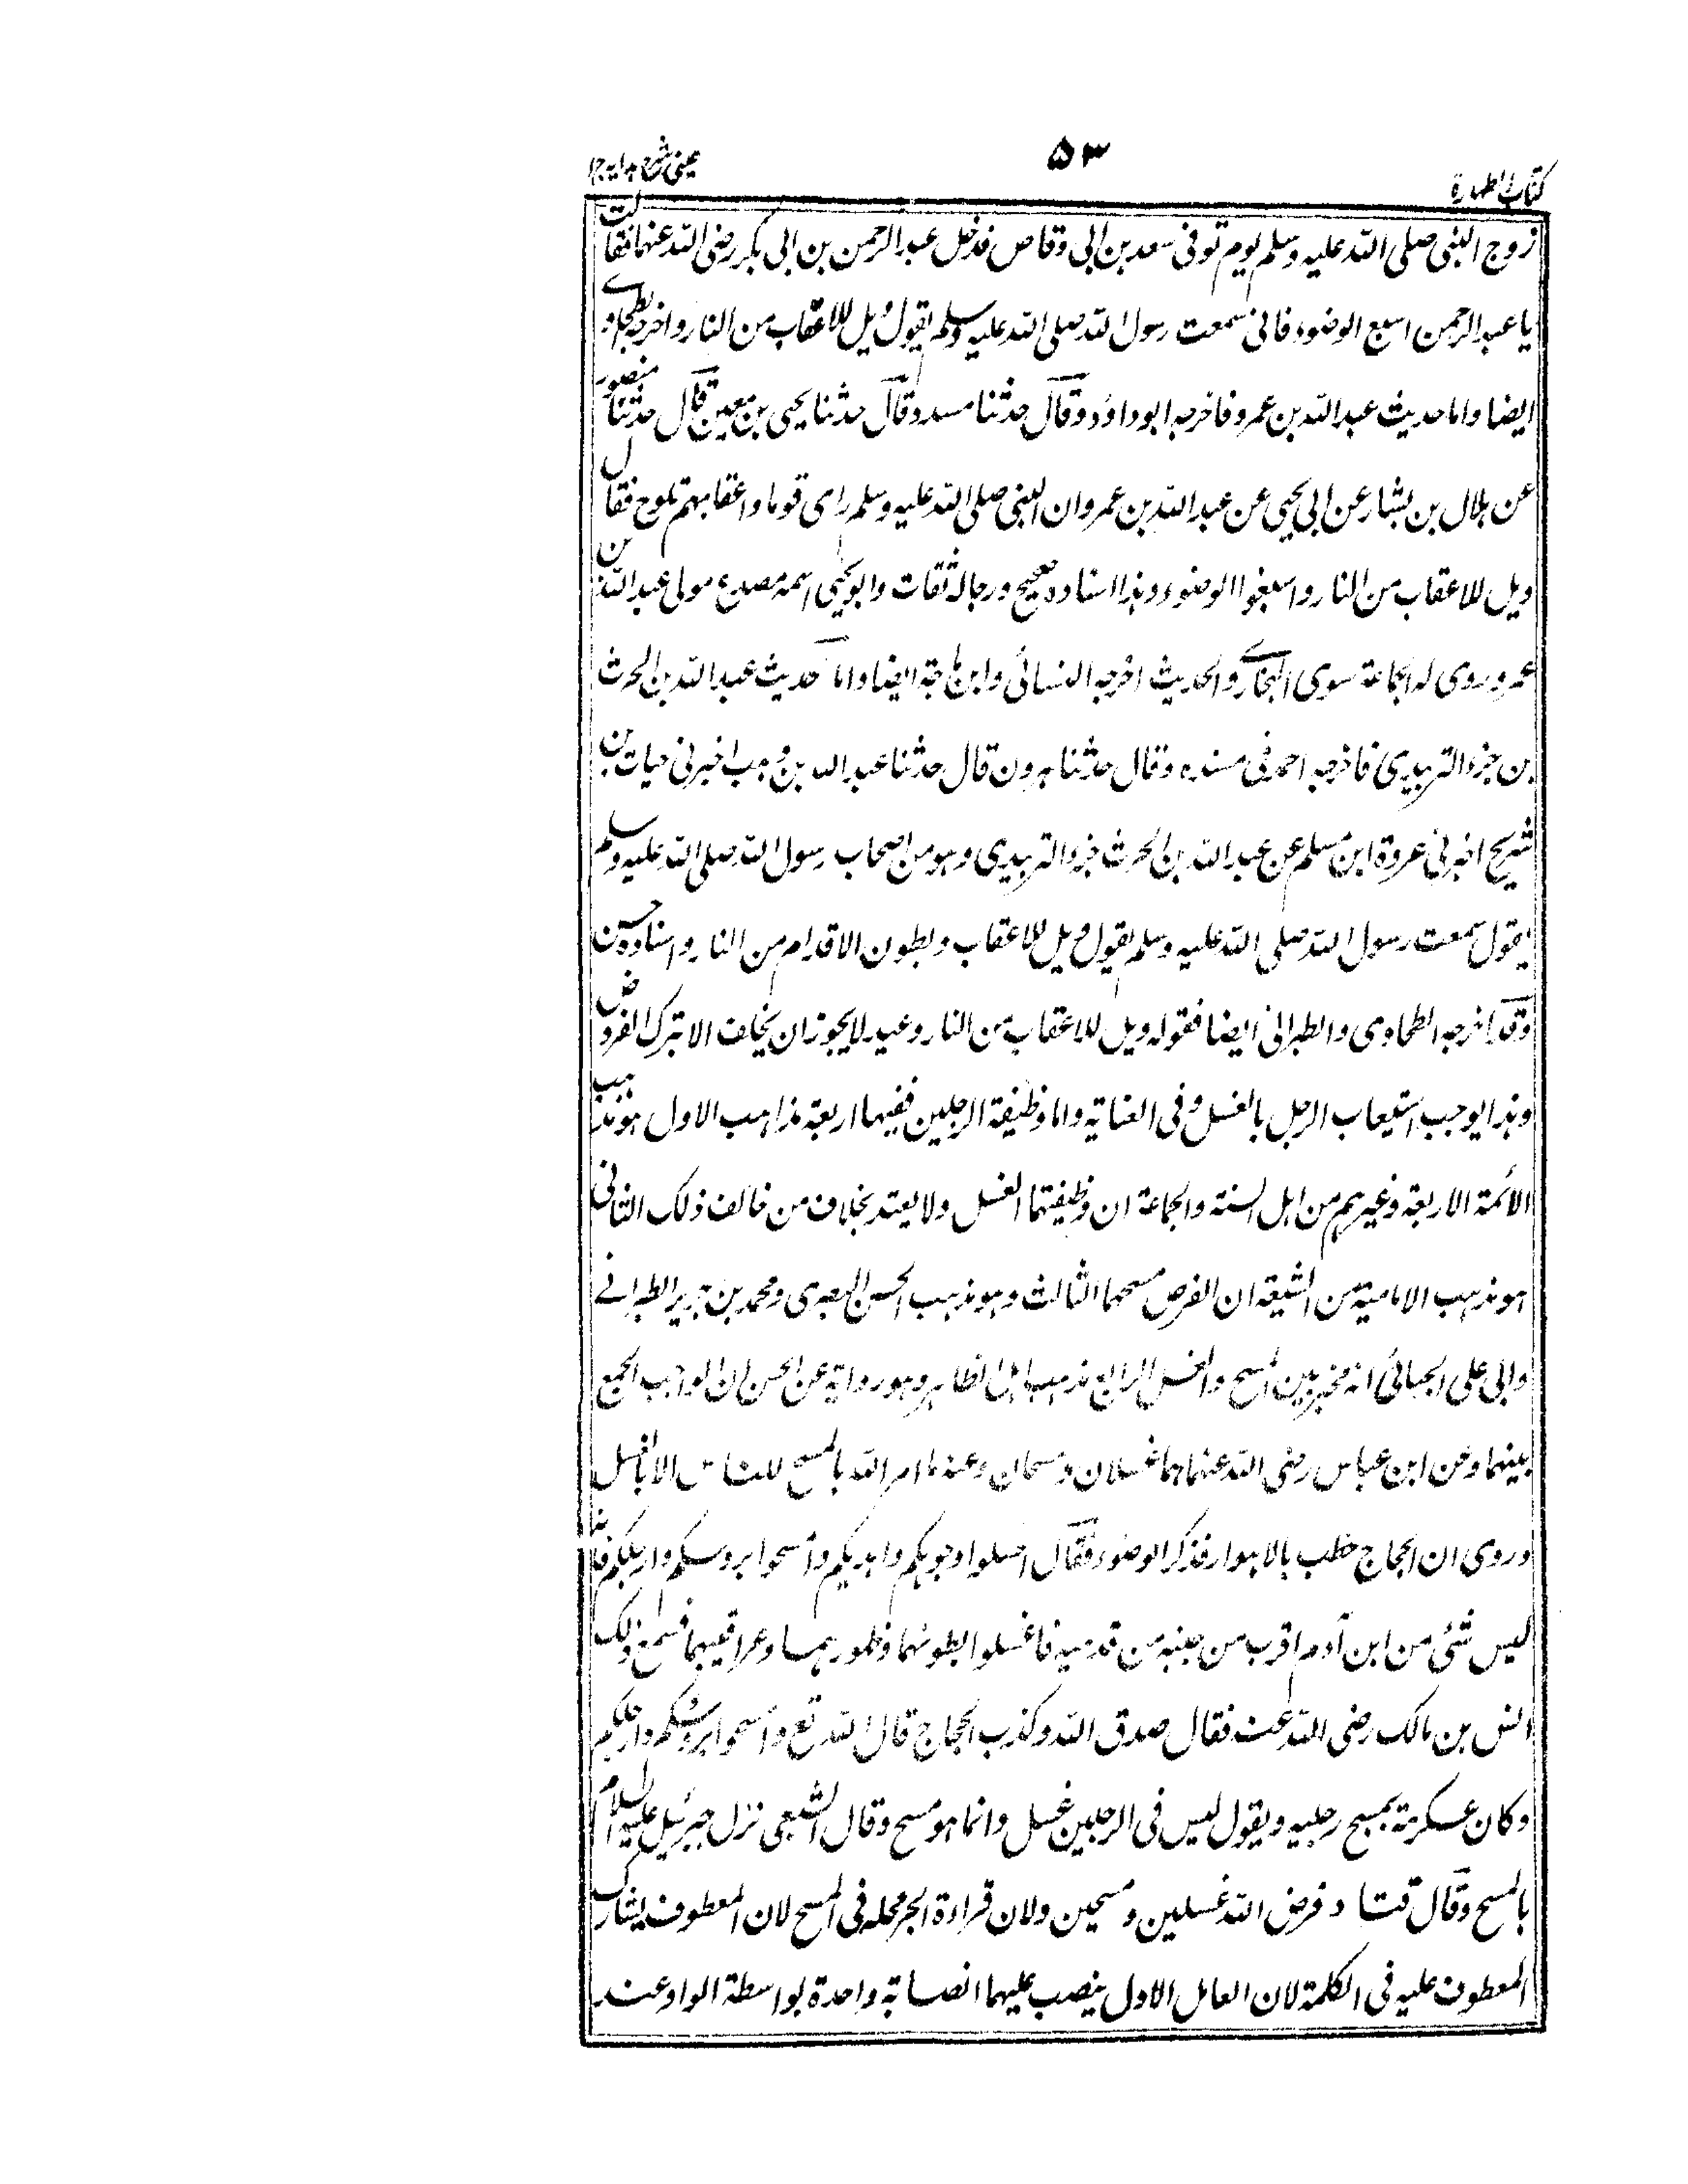 كتاب الطهارة
٥٣
عينى شرح هدايه ج ١
زوج النبى صلى الله عليه وسلم يوم توفى سعد بن ابى وقاص فدخل عبد الرحمن بن ابى بكر رضى الله عنها فقالت
يا عبد الرحمن اسبغ الوضوء فانى سمعت رسول الله صلى الله عليه وسلم يقول ويل للاعقاب من النار واخرجه الطحاوى
ايضا واما حديث عبد الله بن عمرو فاخرجه ابو داؤد وقال حدثنا مسدد وقال حدثنا يحيى بن معين قال حدثنا منصور
عن هلال بن بشار عن ابى يحيى عن عبد الله بن عمرو ان النبى صلى الله عليه وسلم راى قوما واعقابهم تلوح فقال
ويل للاعقاب من النار واسبغوا الوضوء وهذا اسناده صحيح ورجاله ثقات وابو يحيى اسمه مصدع مولى عبد الله بن
عمرو روى له الجماعة سوى البخارى والحديث اخرجه النسائى وابن ماجة ايضا واما حديث عبد الله بن الحرث
بن جزء الزبيدى فاخرجه احمد فى مسنده وقال حدثنا هرون قال حدثنا عبد الله بن وهب اخبرنى حيات بن
شريح اخبرنى عروة ابن مسلم عن عبد الله بن الحرث جزء الزبيدى وهو من اصحاب رسول الله صلى الله عليه وسلم
يقول سمعت رسول الله صلى الله عليه وسلم يقول ويل للاعقاب وبطون الاقدام من النار واسناده حسن
وقد اخرجه الطحاوى والطبرانى ايضا فقوله ويل للاعقاب من النار وعيد لا يجوز ان يخلف الا بترك الفروض
وهذا يوجب استيعاب الرجل بالغسل وفى العناية واما وظيفة الرجلين ففيها اربعة مذاهب الاول هو مذهب
الائمة الاربعة وغيرهم من اهل السنة والجماعة ان وظيفتهما الغسل ولا يعتد بخلاف من خالف ذلك الثانى
هو مذهب الامامية من الشيعة ان الفرض مسحهما الثالث وهو مذهب الحسن البصرى ومحمد بن جرير الطبرانے
وابى على الجبائى انه مخير بين المسح والغسل الرابع مذهب اهل الظاهر وهو رواية عن الحسن ان الواجب الجمع
بينهما وعن ابن عباس رضى الله عنهما هما غسلان ومسحان وعنه ما امر الله بالمسح للناس الا بالغسل
وروى ان الحجاج خطب بالاهواز فذكر الوضوء فقال اغسلوا وجوهكم وايديكم وامسحوا بروسكم وارجلكم فانه
ليس شئ من ابن آدم اقرب من جنبه من قدميه فاغسلوا بطونهما وظهورهما وعراقيبهما فسمع ذلك
انس بن مالك رضى الله عنه فقال صدق الله وكذب الحجاج قال الله تع وامسحوا بروسكم وارجلكم
وكان عكرمة يمسح رجليه ويقول ليس فى الرجلين غسل وانما هو مسح وقال الشعبى نزل جبرئيل عليه السلام
بالمسح وقال قتاد فرض الله غسلين ومسحين ولان قراءة الجر محله فى المسح لان المعطوف يشارك
المعطوف عليه فى الكلمة لان العامل الاول ينصب عليهما انصبابة واحدة بواسطة الواو عند